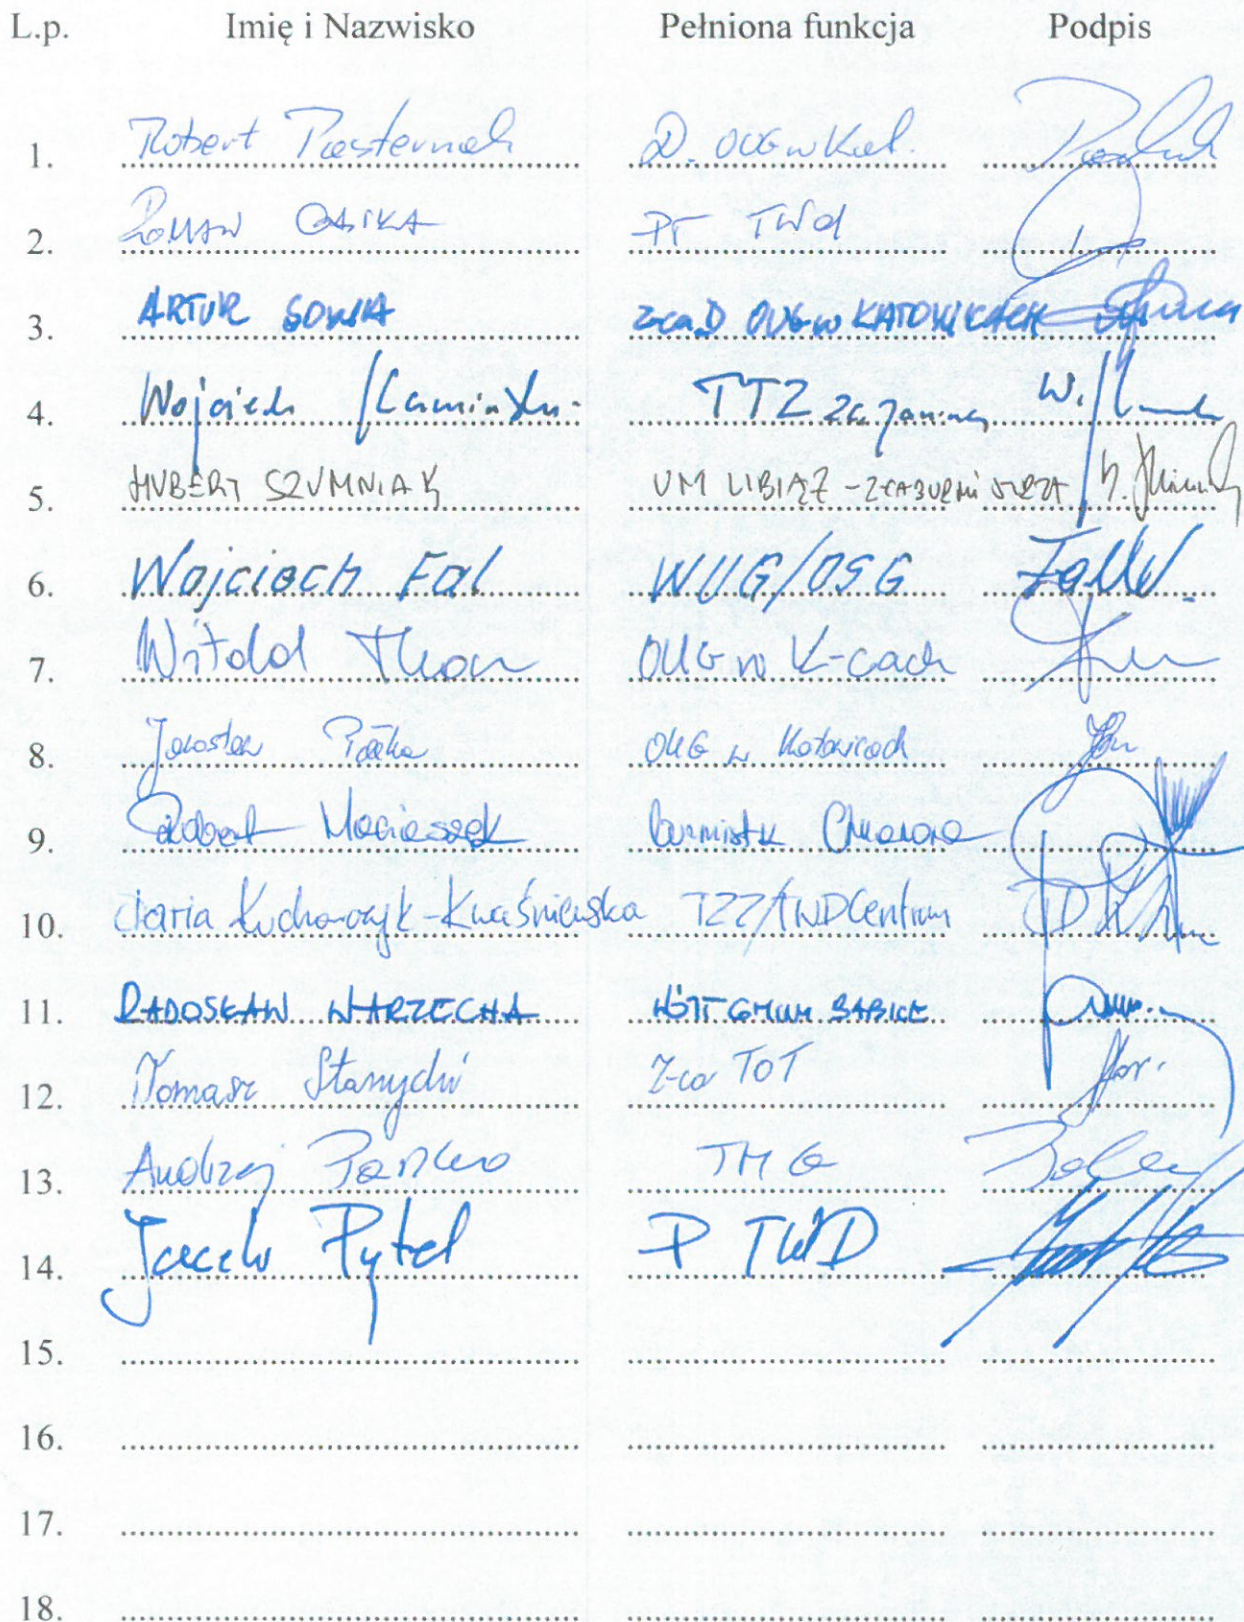 L.p. Imię i Nazwisko Pełniona funkcja Podpis
1. Robert Pasternak D. OUG w Kat.
2. ROMAN GĄSKA PT TWD
3. ARTUR SOWIA z-ca D OUG w KATOWICACH
4. Wojciech Kamiński TTZ ZG Janina W.
5. HUBERT SZUMNIAK UM LIBIĄŻ - Z-CA BURMISTRZA H.
6. Wojciech Fal WUG/OSG Fal W.
7. Witold OUG w K-cach
8. Jarosław Pałka OUG w Katowicach
9. Robert Maciaszek Burmistrz Chrzanowa
10. Daria Kucharczyk-Kwaśniewska TZZ/TWDCentrum
11. RADOSŁAW WARZECHA WÓJT GMINY BABICE
12. Tomasz Stanychi Z-ca TOT
13. Andrzej TMG
14. Jacek Pytel P TWD
15.
16.
17.
18.